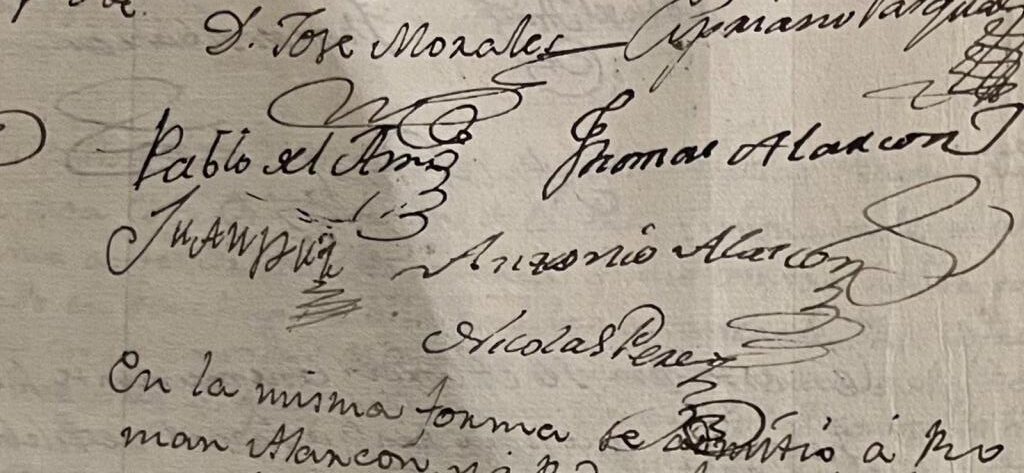 D. Jose Morales Cipriano Pasqual
Pablo del Amo Thomas Alarcon
Juan
Antonio Alarcon
Nicolas Perez
En la misma forma se admitio á Ro
man Alarcon